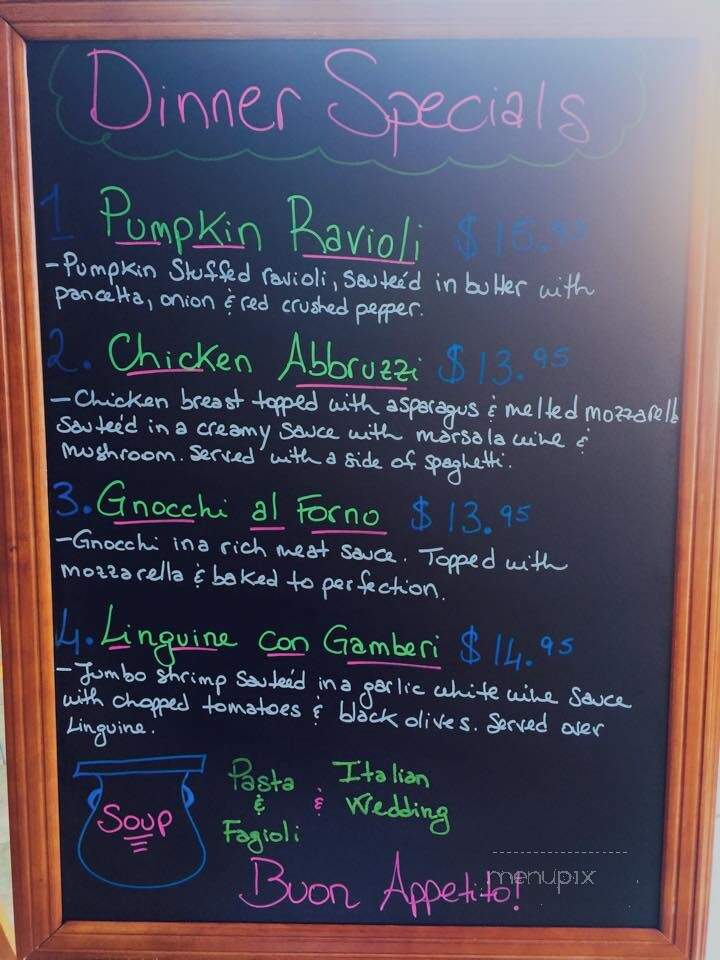 Dinner Specials
1 Pumpkin Ravioli $15.95
-Pumpkin Stuffed ravioli, Sauteéd in butter with
pancetta, onion & red crushed pepper.
2. Chicken Abbruzzi $13.95
-Chicken breast topped with asparagus & melted mozzarella
Sauteéd in a creamy sauce with marsala wine &
Mushroom. Served with a side of spaghetti.
3. Gnocchi al Forno $13.95
-Gnocchi in a rich meat sauce. Topped with
mozzarella & baked to perfection.
4. Linguine con Gamberi $14.95
-Jumbo shrimp sauteéd in a garlic white wine sauce
with chopped tomatoes & black olives. Served over
Linguine.
Soup
Pasta
&
Fagioli
&
Italian
Wedding
Buon Appetito!
menupix